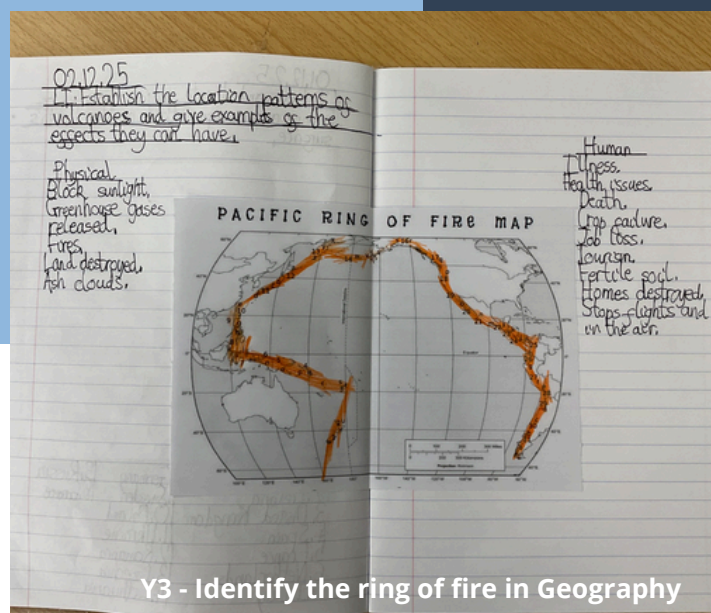 02.12.25
LI: Establish the location patterns of
volcanoes and give examples of the
effects they can have.
Physical
Block sunlight.
Greenhouse gases
released.
Fires.
Land destroyed.
Ash clouds.
Human
Illness.
Health issues.
Death.
Crop failure.
Job loss.
Tourism.
Fertile soil.
Homes destroyed.
Stops flights and
in the air.
PACIFIC RING OF FIRE MAP
Equator
Y3 - Identify the ring of fire in Geography